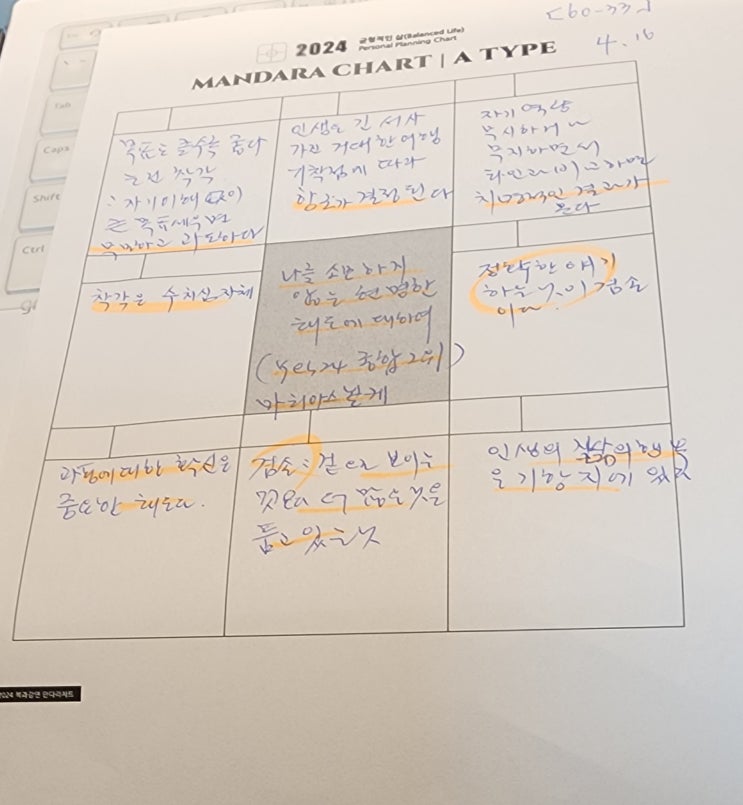 <60-33>
4.16
2024 균형적인 삶(Balanced Life)
Personal Planning Chart
MANDARA CHART | A TYPE
목표는 클수록 좋다
큰 착각
: 자기이해 없이
큰 목표세우면
무모하고 과도하다
인생은 긴 서사
가진 거대한 여행
기착점에 따라
항로가 결정된다
자기 역량
무시하거나
무지하면서
타인과 비교하면
치명적인 결과가
온다
착각은 수치심 자체
나를 소모하지
않는 현명한
태도에 대하여
(yes24 종합 2위)
마티아스 뇔케
정확한 얘기
하는 것이 겸손
이다.
과정에 대한 확신은
중요한 태도다.
겸손: 겉으로 보이는
것보다 더 많은 것을
품고 있는 것
인생의
을 기항지에 있다
Tab
Caps
Shift
Ctrl
2024 북과강연 만다라차트